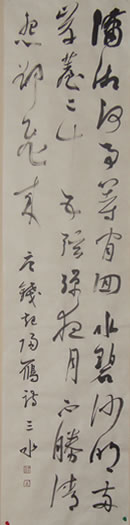 瀟湘何事等閒回水碧沙明兩
岸苔二十五弦彈夜月不勝清
怨却飛來
唐錢起歸雁詩 三水